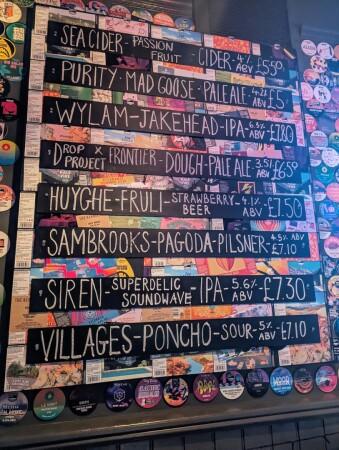 SEA CIDER - PASSION FRUIT - CIDER - 4% ABV £5.50
PURITY · MAD GOOSE · PALE ALE · 4.2% ABV £5
WYLAM - JAKEHEAD - IPA - 6.3% ABV £7.80
DROP PROJECT X FRONTIER - DOUGH - PALE ALE 3.5% ABV £6.50
HUYGHE - FRULI - STRAWBERRY BEER - 4.1% ABV £7.50
SAMBROOKS - PAGODA - PILSNER - 4.5% ABV £7.10
SIREN - SUPERDELIC SOUNDWAVE - IPA - 5.6% ABV - £7.30
VILLAGES - PONCHO - SOUR - 5% ABV - £7.10